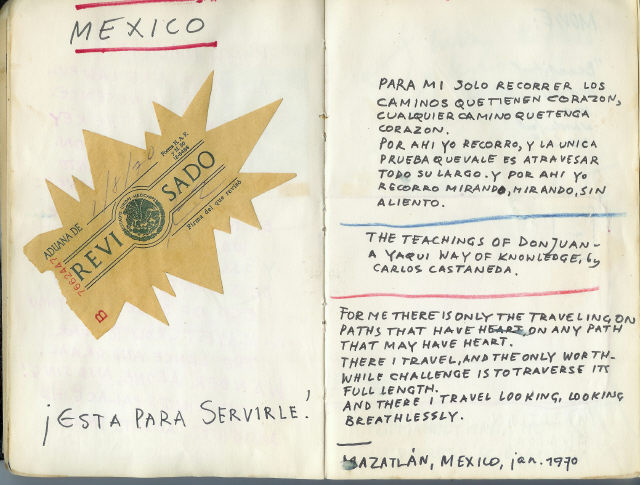 MEXICO
Forma H. A. R.
ADUANA DE
1/8/70
REVISADO
Firma del que revisó
7662447
B
¡ESTA PARA SERVIRLE!
PARA MI SOLO RECORRER LOS
CAMINOS QUE TIENEN CORAZON,
CUALQUIER CAMINO QUE TENGA
CORAZON.
POR AHI YO RECORRO, Y LA UNICA
PRUEBA QUE VALE ES ATRAVESAR
TODO SU LARGO. Y POR AHI YO
RECORRO MIRANDO, MIRANDO, SIN
ALIENTO.
THE TEACHINGS OF DON JUAN -
A YAQUI WAY OF KNOWLEDGE, by
CARLOS CASTANEDA.
FOR ME THERE IS ONLY THE TRAVELING ON
PATHS THAT HAVE HEART, ON ANY PATH
THAT MAY HAVE HEART.
THERE I TRAVEL, AND THE ONLY WORTH-
WHILE CHALLENGE IS TO TRAVERSE ITS
FULL LENGTH.
AND THERE I TRAVEL LOOKING, LOOKING
BREATHLESSLY.
MAZATLÁN, MEXICO, jan. 1970